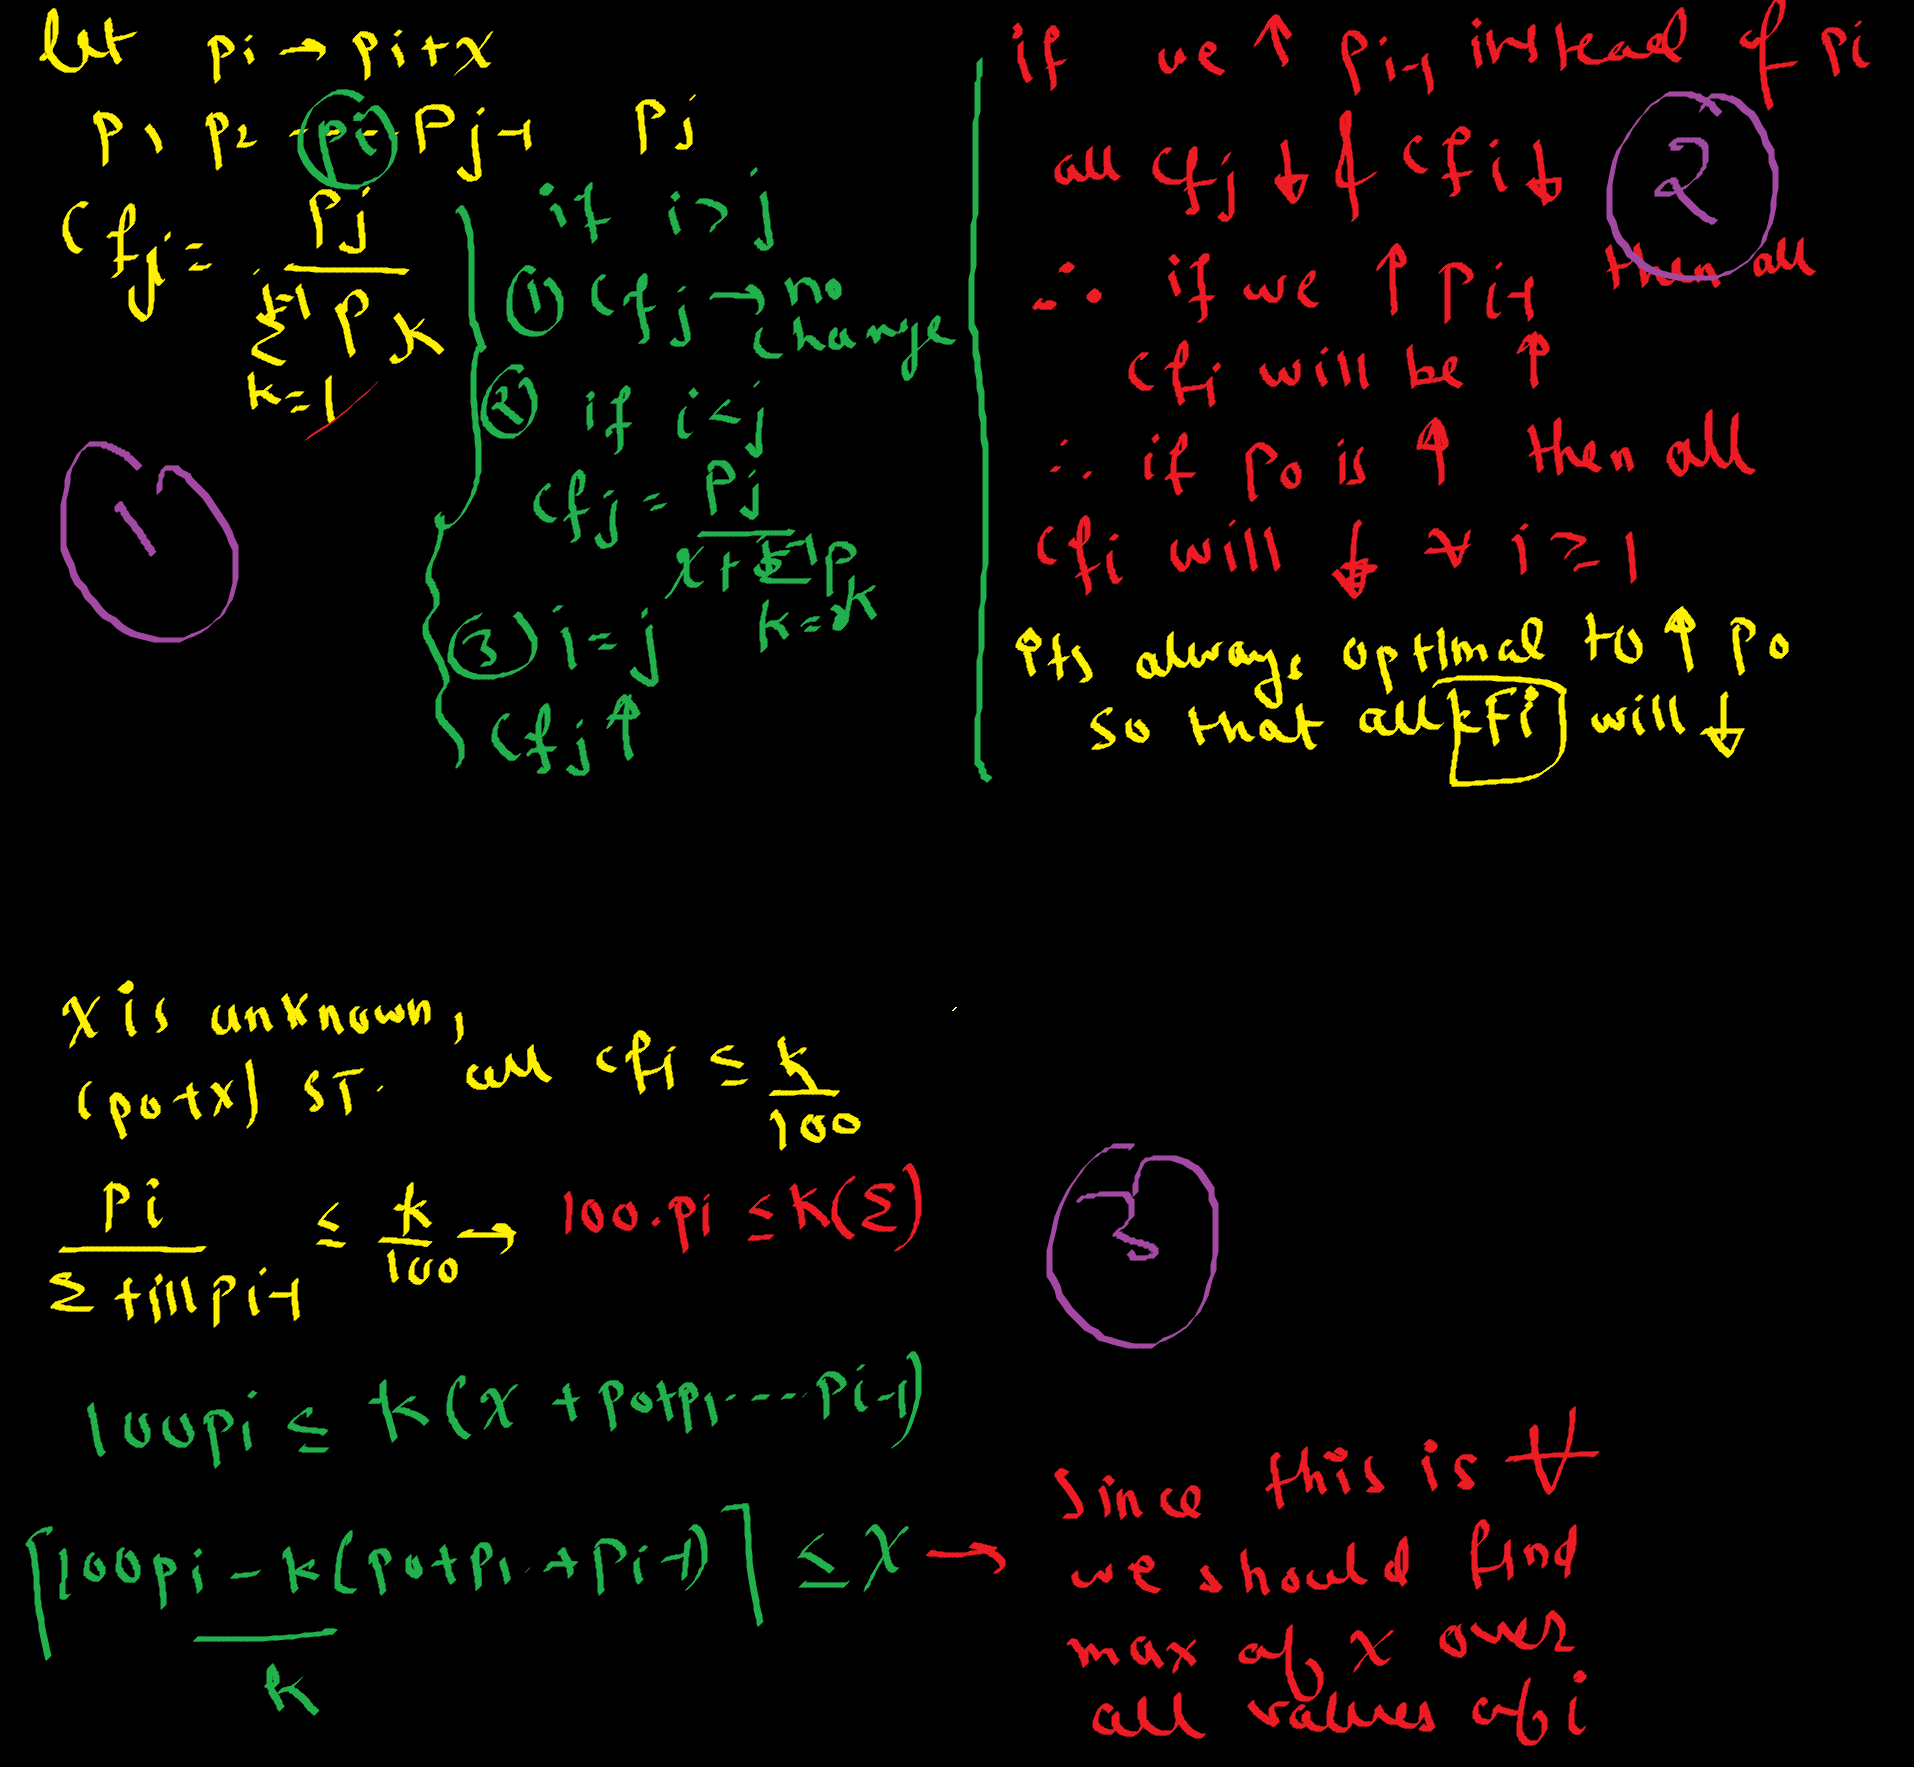 let pi → pi+x
p1 p2 - pi - Pj-1 Pj
Cfj = Pj
j-1
Σ Pk
k=1
1
if i > j
① Cfj → no
change
② if i < j
Cfj = Pj
x + Σ Pk
k=1
③ i = j
Cfj ↑
if we ↑ Pi-1 instead of pi
all Cfj ↓ & Cfi ↓
2
∴ if we ↑ Pi-1 then all
Cfi will be ↑
∴ if P0 is ↑ then all
Cfi will ↓ ∀ i ≥ 1
Its always optimal to ↑ P0
so that all cfi will ↓
x is unknown,
(p0+x) ST. all cfi ≤ k
100
Pi ≤ k → 100.pi ≤ k(Σ)
Σ till Pi-1 100
3
100pi ≤ k(x + p0+p1....Pi-1)
⌈100pi - k(p0+p1..+Pi-1)⌉ ≤ x →
k
Since this is ∀
we should find
max of x over
all values of i